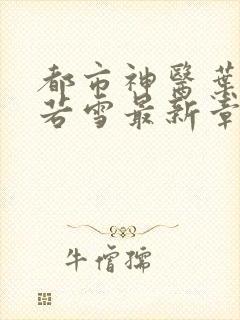 都市神醫葉
若雪最新章
牛僧孺